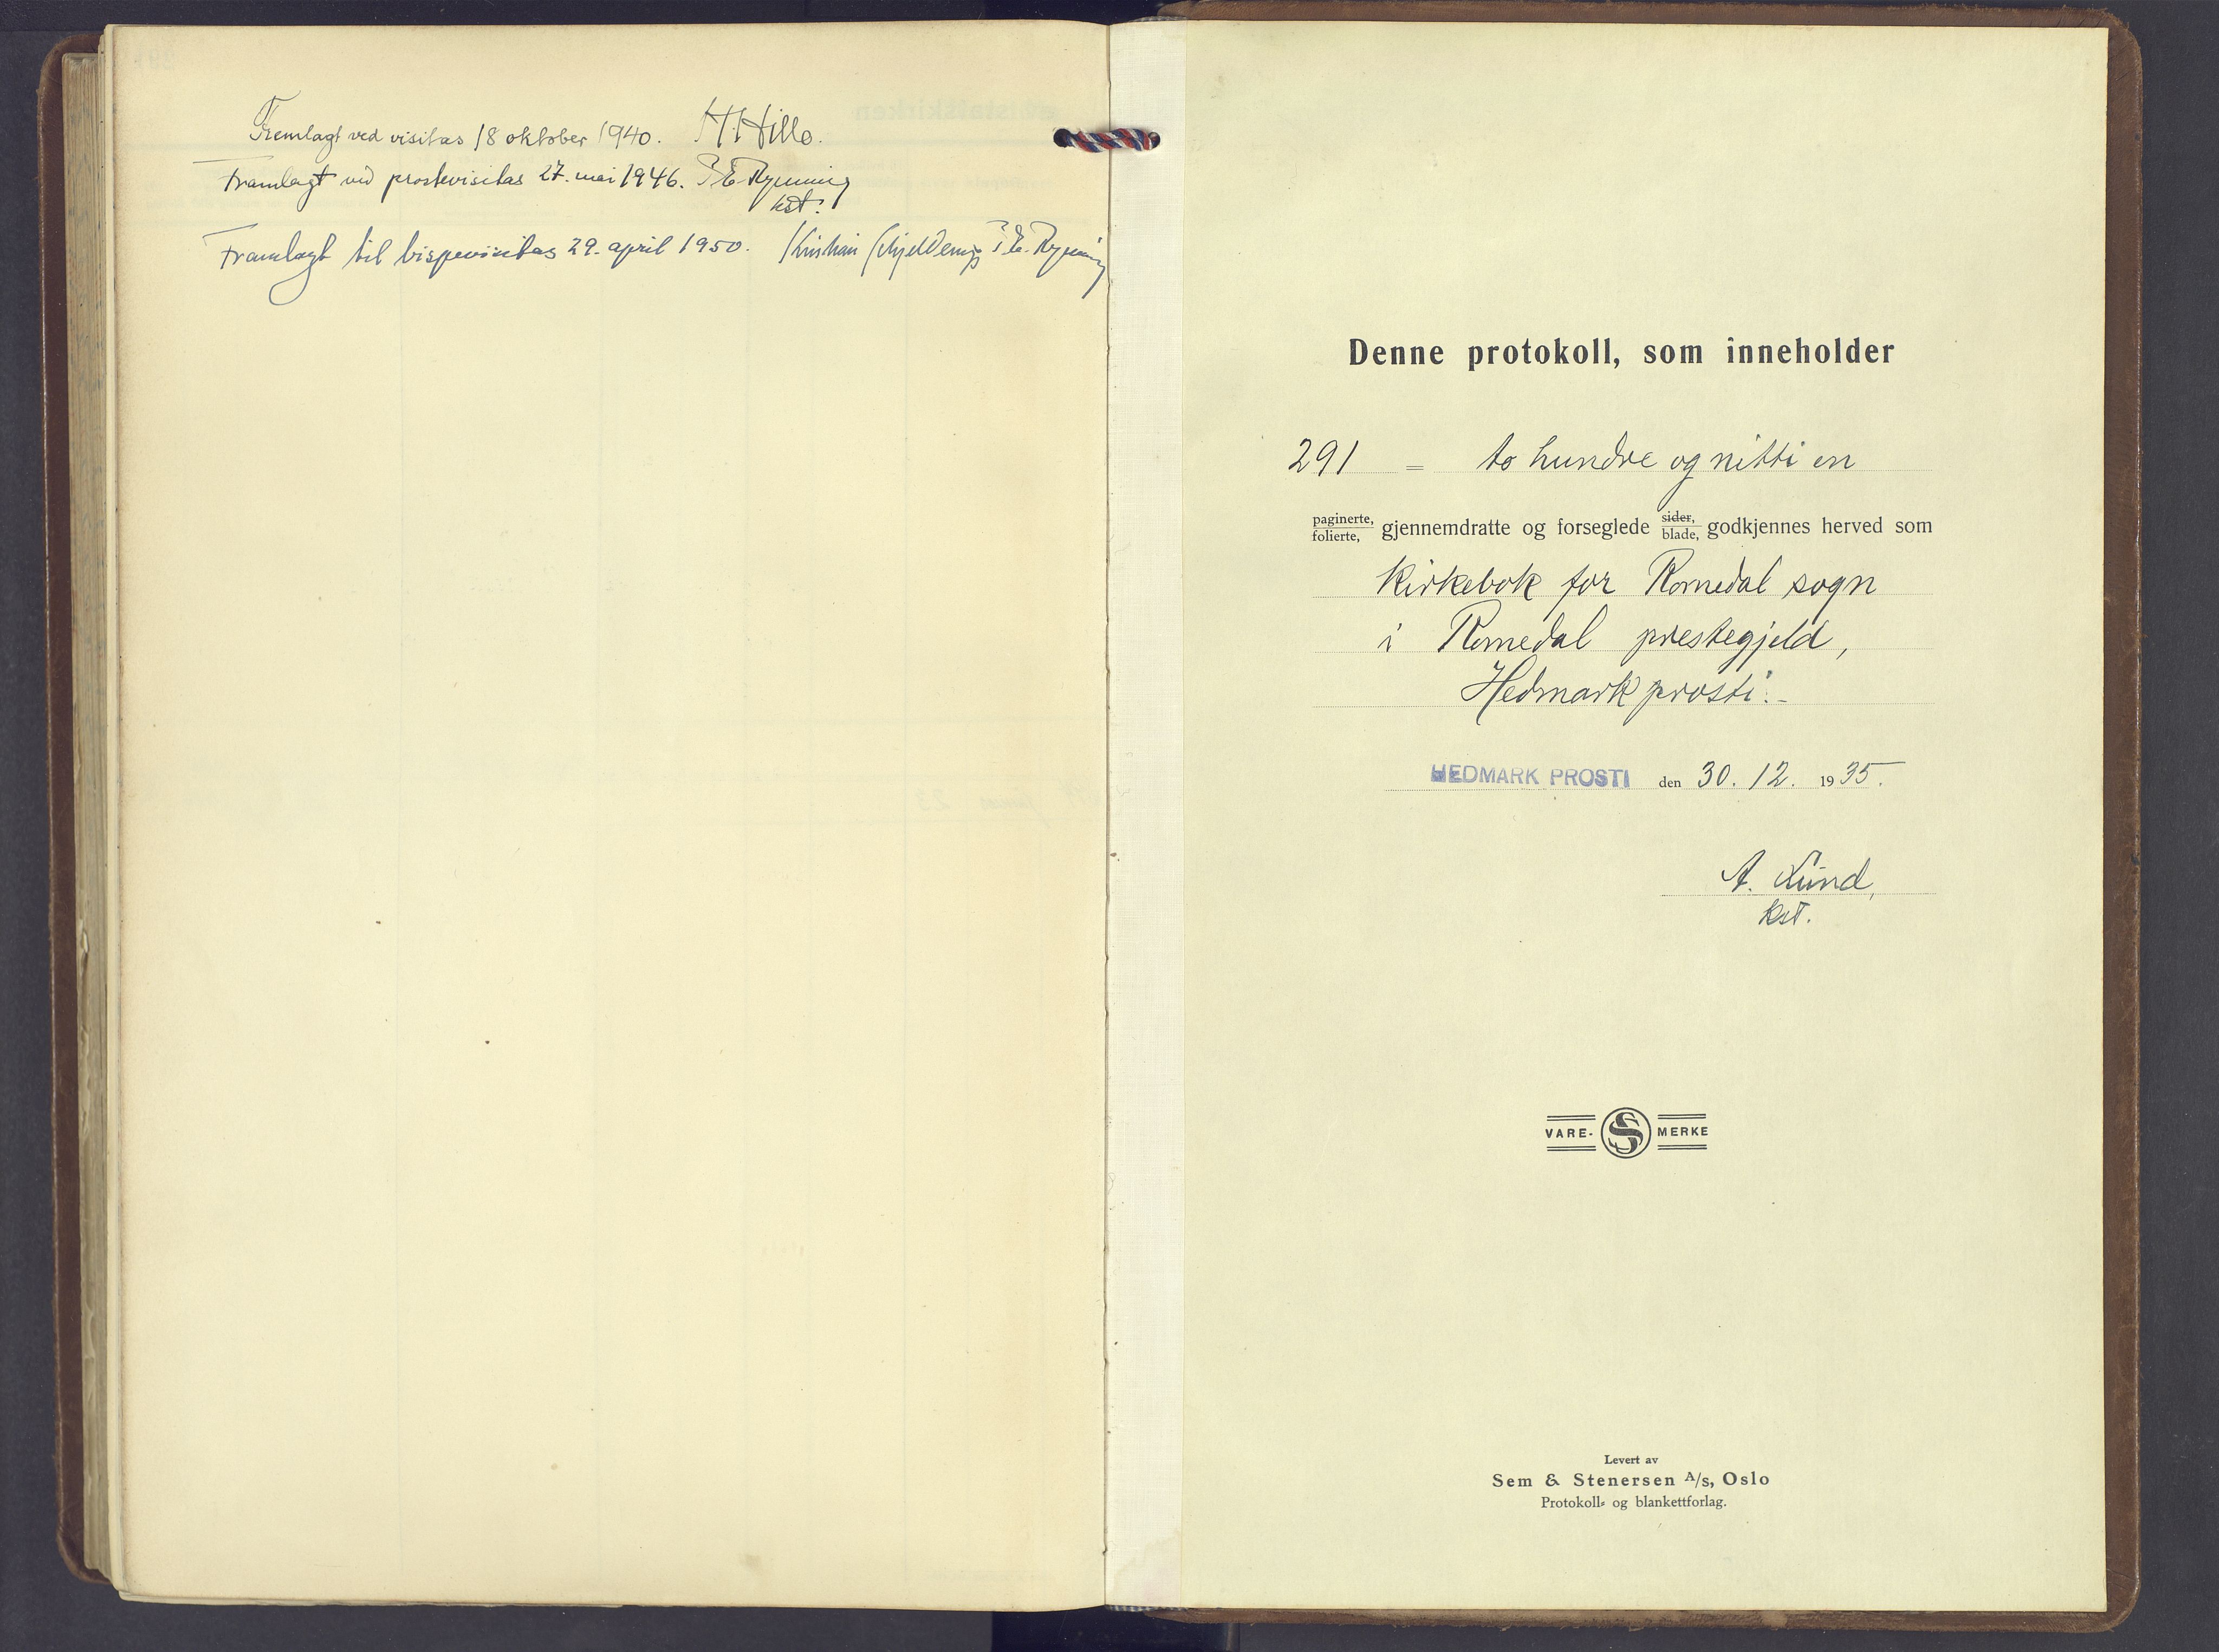 Fremlagt ved visitas 18 oktober 1940. H. Hille.
Framlagt ved prostevisitas 27. mai 1946. P. E. Rynning
kst.
Framlagt til bispevisitas 29. april 1950. Kristian Schjelderup P. E. Rynning
Denne protokoll, som inneholder
291 = to hundre og nitti en
paginerte,
folierte, gjennemdratte og forseglede sider,
blade, godkjennes herved som
kirkebok for Romedal sogn
i Romedal prestegjeld,
Hedmark prosti.-
HEDMARK PROSTI den 30. 12. 1935.
A. Lund,
kst.
VARE- SS MERKE
Levert av
Sem & Stenersen A/s, Oslo
Protokoll- og blankettforlag.